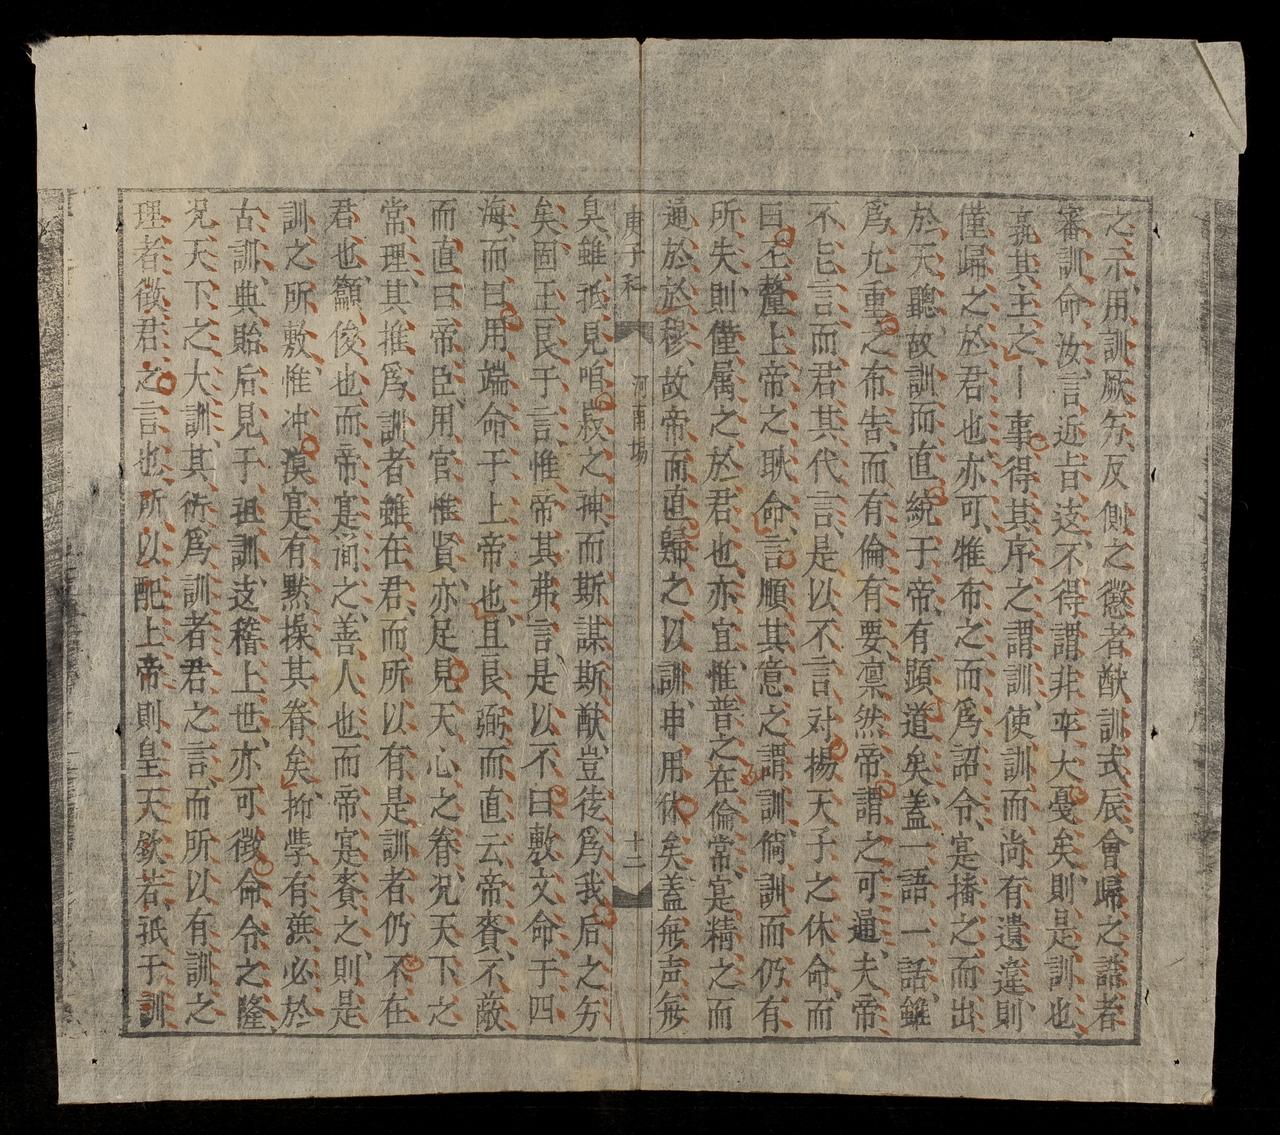 之示、用訓厥方、反側之懲者猷訓式辰、會歸之誥者
審訓命汝、言近㫖𨒪、不得謂非卒大戞矣、則是訓也、
竟其主之、一事得其序之謂訓、使訓而尚有遺違、則
僅歸之於君也、亦可、惟布之而爲詔令、寔播之而出
於天聽、故訓而直統于帝、有顕道矣、盖一語一話、雖
爲九重之布告、而有倫有要、凛然帝謂之可通、夫帝
不能言而君其代言、是以不言对揚天子之休命、而
曰丕釐上帝之耿命、言順其意之謂訓、倘訓而仍有
所失、則僅属之於君也、亦宜、惟普之在倫常、寔精之而
通於於穆、故帝而直歸之以訓、申用休矣、盖無声無
庚子科　河南場　十二
臭、雖祇見咱叔之神、而斯謀斯猷、豈徒爲我后之方
矣、固王良于言、惟帝其弗言、是以不曰敷文命于四
海、而曰用端命于上帝也、且良弼而直云帝賚、不敵
而直曰帝臣、用官惟賢、亦足見天心之眷、况天下之
常理、其推爲訓者、雖在君、而所以有是訓者仍不在
君也、籲俊也而帝寔简之、善人也而帝寔賚之、則是
訓之所敷、惟冲漠寔有黙操其眷矣、抑學有獲必於
古訓、典貽后見于祖訓、𨒪稽上世、亦可徴命令之隆、
况天下之大訓、其衍爲訓者君之言、而所以有訓之
理者徵君之言也、所以配上帝則皇天欽若、祇于訓